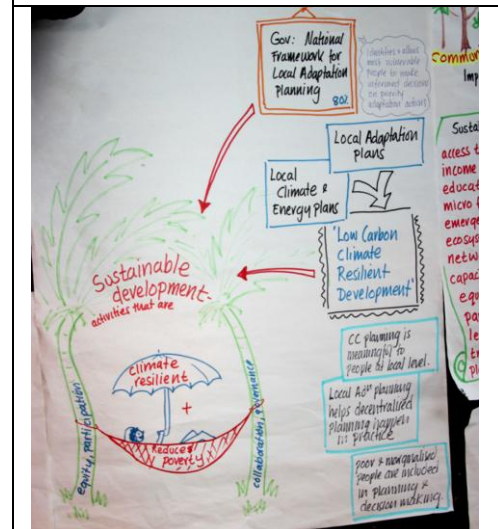 Gov: National
Framework for
Local Adaptation
Planning
80%
Identifies & allows
most vulnerable
people to make
informed decisions
on priority
adaptation actions
Local Adaptation
plans
Local
Climate &
Energy plans
'Low Carbon
Climate
Resilient
Development'
Sustainable
development-
activities that are
climate
resilient
+
Reduces
poverty
equity, participation
collaboration, governance
CC planning is
meaningful to
people at local level.
Local Adn planning
helps decentralised
planning happen
in practice
poor & marginalised
people are included
in planning &
decision making.
Commun
Imp
Susta
access t
income
educat
micro f
emerge
ecosys
netw
capac
equ
pa
le
t
pl